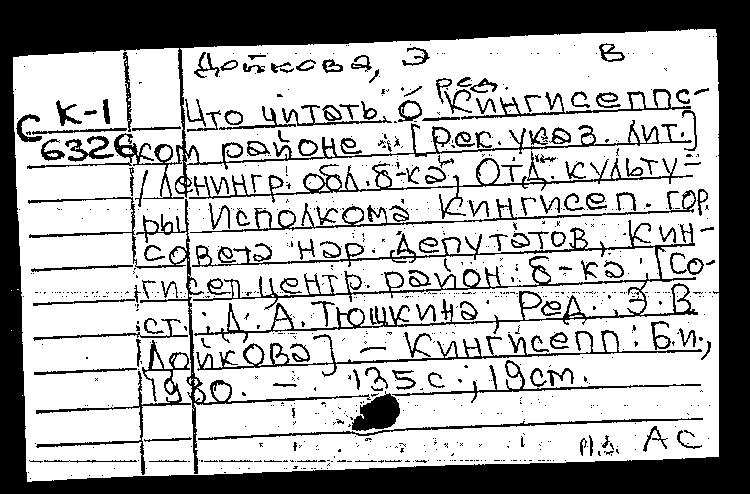 Дойкова, Э В
ред.
К-1 Что читать о Кингисеппс-
С 6326 ком районе : [Рек. указ. лит.]
/ Ленингр. обл. б-ка, Отд. культу-
ры Исполкома Кингисеп. гор.
совета нар. депутатов, Кин-
гисеп. центр. район. б-ка ; [Со-
ст.: Д. А. Тюшкина ; Ред.: Э. В.
Дойкова]. - Кингисепп : Б.и.,
1980. - 135 с. ; 19 см.
АС